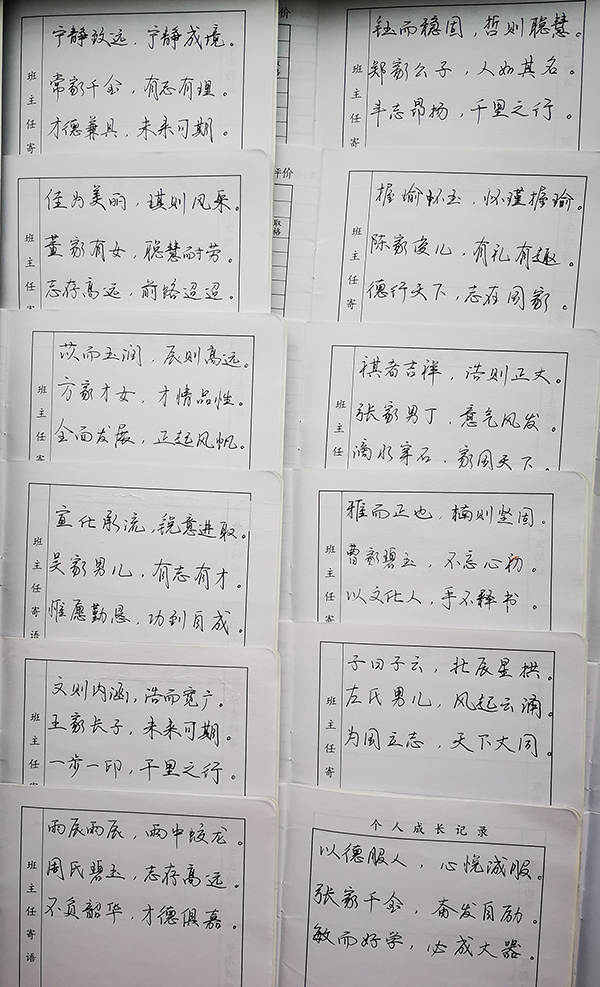 宁静致远，宁静成境。
常家千金，有志有理。
才德兼具，未来可期。
班主任寄
佳为美丽，琪则风采。
董家有女，聪慧耐劳。
志存高远，前路迢迢。
班主任寄
苡而玉润，辰则高远。
方家才女，才情品性。
全面发展，正起风帆。
班主任寄
宣仕承流，锐意进取。
吴家男儿，有志有才。
惟愿勤恳，功到自成。
班主任寄语
文则内涵，浩而宽广。
王家长子，未来可期。
一步一印，千里之行。
班主任寄
雨辰雨辰，雨中蛟龙。
周氏碧玉，志存高远。
不负韶华，才德俱嘉。
班主任寄语
价
评价
钰而稳固，哲则聪慧。
郑家公子，人如其名。
斗志昂扬，千里之行。
班主任寄
握瑜怀玉，怀瑾握瑜。
陈家俊儿，有礼有趣。
德行天下，志在国家。
班主任寄
祺者吉祥，浩则正大。
张家男丁，意气风发。
滴水穿石，家国天下。
班主任
雅而正也，楠则坚固。
曹家碧玉，不忘心初。
以文化人，手不释书。
班主任寄
子曰子云，北辰星拱。
左氏男儿，风起云涌。
为国立志，天下大同。
班主任寄
个人成长记录
以德服人，心悦诚服。
张家千金，奋发自励。
敏而好学，必成大器。